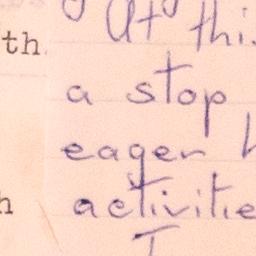 At thi
th
a stop
eager
activitie